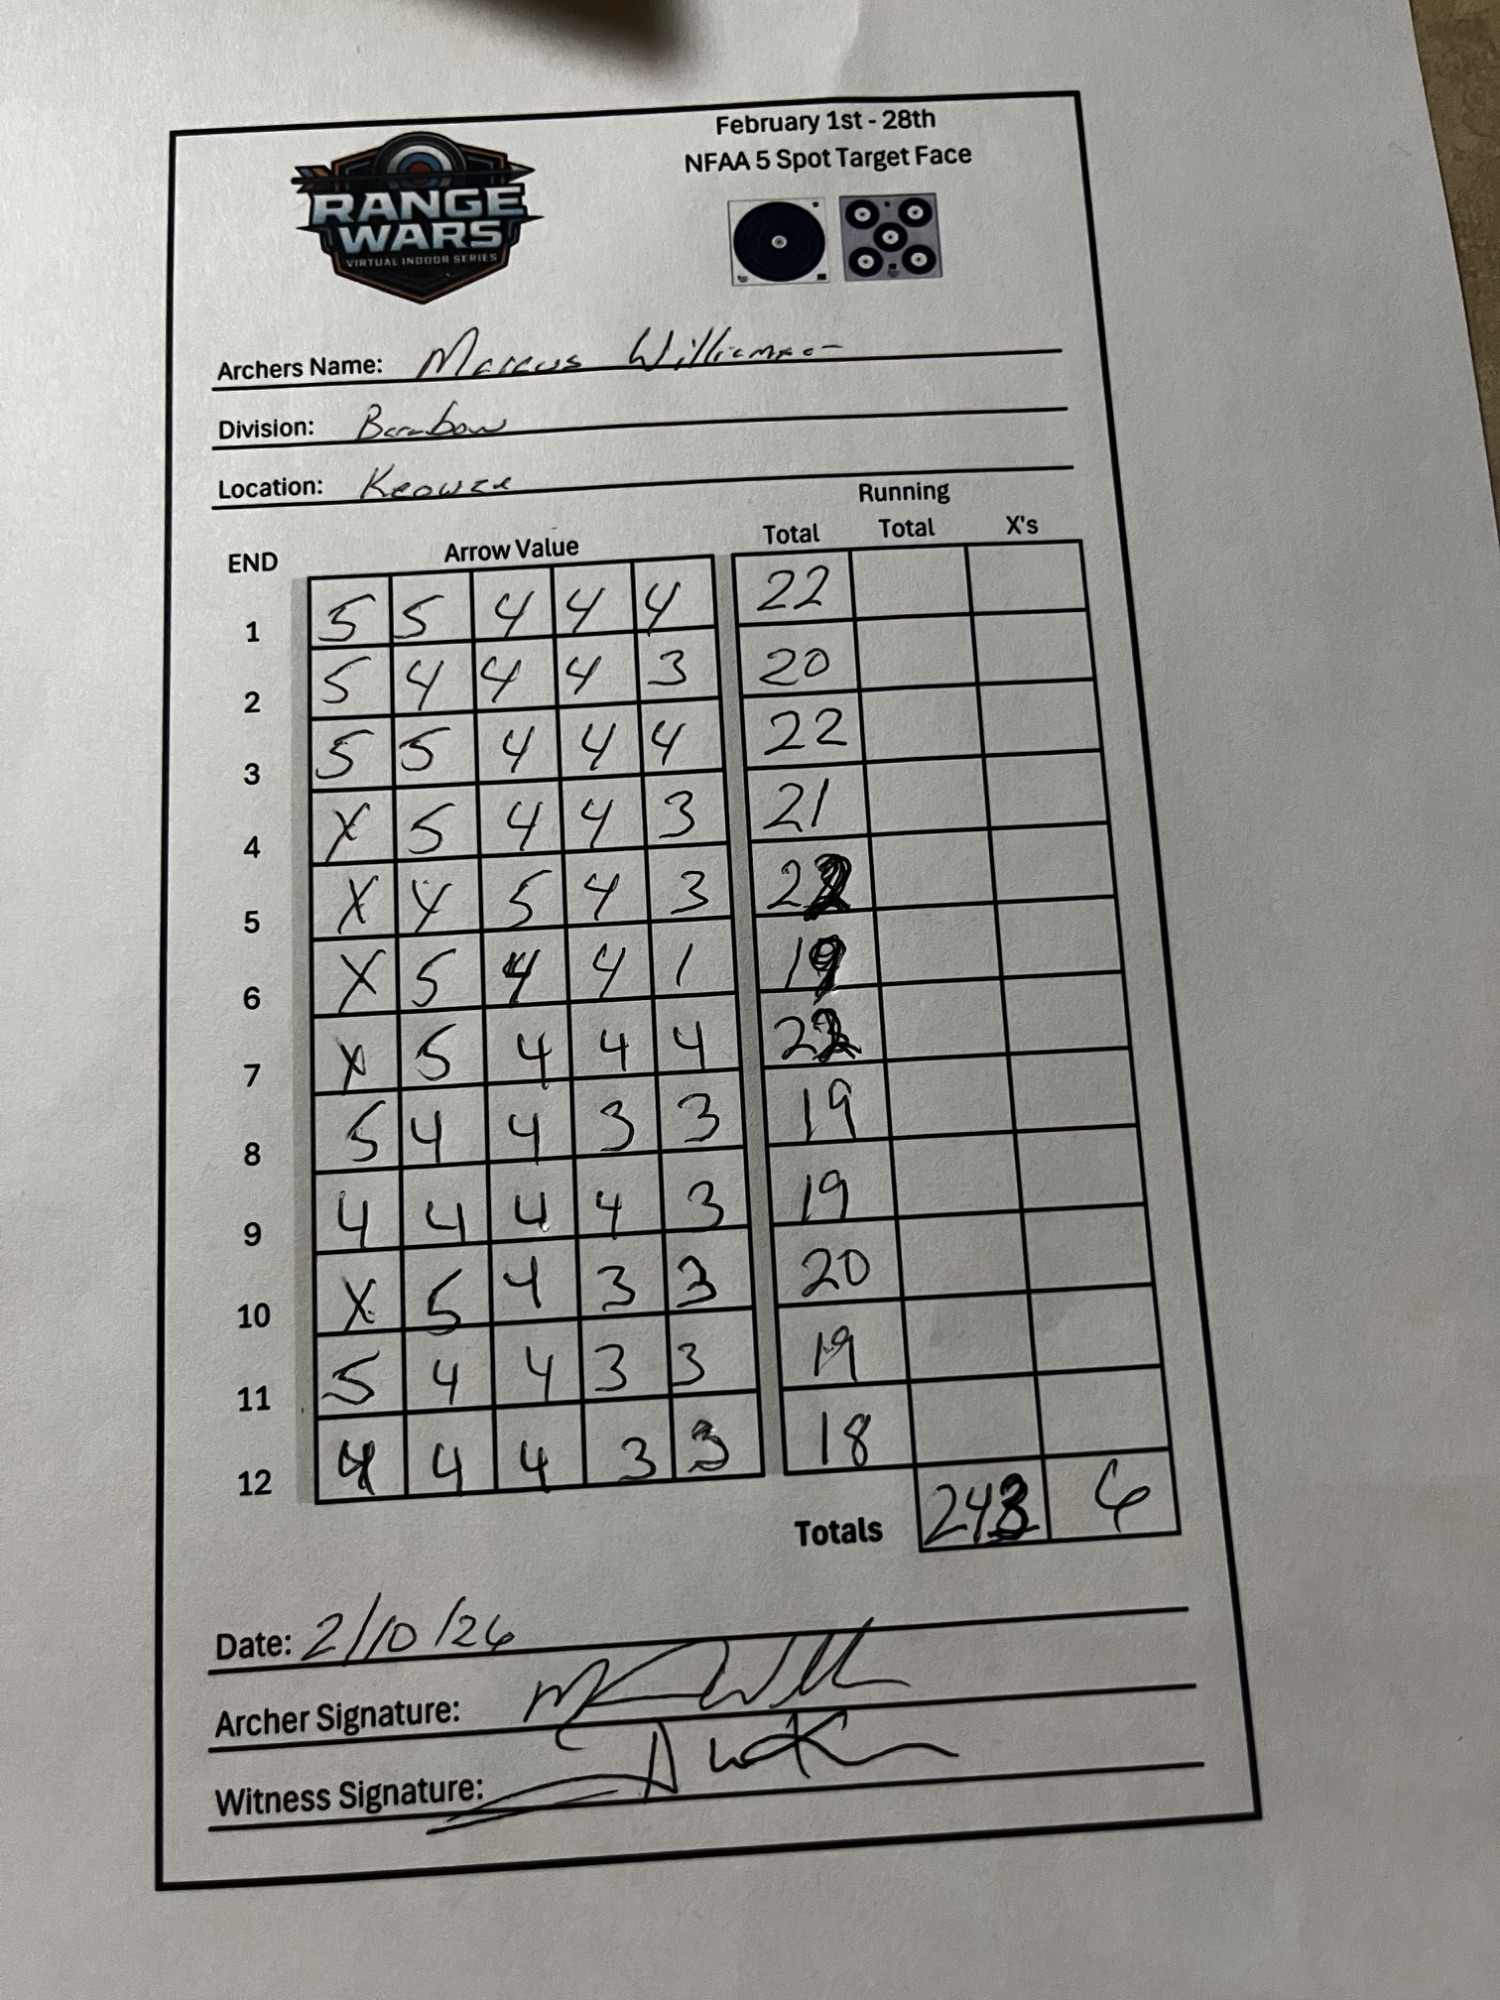 February 1st - 28th
NFAA 5 Spot Target Face
RANGE
WARS
VIRTUAL INDOOR SERIES
Archers Name: Marcus Williamson
Division: Barebow
Location: Keowee
Running
END Arrow Value Total Total X's
1 5 5 4 4 4 22
2 5 4 4 4 3 20
3 5 5 4 4 4 22
4 X 5 4 4 3 21
5 X 4 5 4 3
6 X 5 4 4 1
7 X 5 4 4 4
8 5 4 4 3 3 19
9 4 4 4 4 3 19
10 X 5 4 3 3 20
11 5 4 4 3 3 19
12 4 4 4 3 3 18
Totals 243 6
Date: 2/10/26
Archer Signature:
Witness Signature: